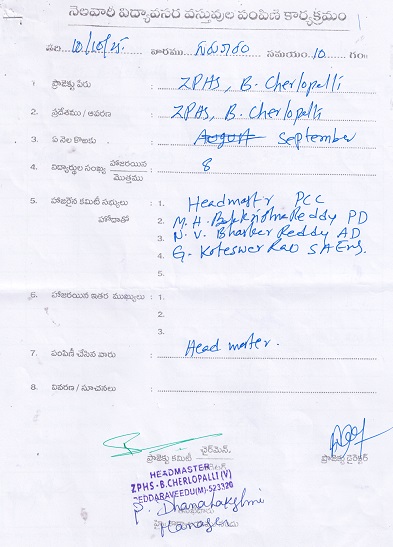 నెలవారీ విద్యావసర వస్తువుల పంపిణీ కార్యక్రమం
తేది. 10/10/25. వారము సమయం 10 గం॥
1. ప్రాజెక్టు పేరు : ZPHS, B. Cherlopalli
2. ప్రదేశము / ఆవరణ : ZPHS, B. Cherlopalli
3. ఏ నెల కొఱకు : August September
4. విద్యార్థుల సంఖ్య హాజరయిన మొత్తము : 8
5. హాజరైన కమిటీ సభ్యులు : 1. Headmastr PCC
హోదాతో 2. M. H. Balakrishna Reddy PD
3. N. V. Bhasker Reddy AD
4. G. Koteswer Rao SA Eng.
5.
6. హాజరయిన ఇతర ముఖ్యులు : 1.
2.
3.
7. పంపిణీ చేసిన వారు : Head master.
8. వివరణ / సూచనలు :
ప్రాజెక్టు కమిటీ చైర్‌మెన్. ప్రాజెక్టు డైరెక్టర్
HEADMASTER
ZPHS-B.CHERLOPALLI (V)
PEDDARAVEEDU(M)-523320
S. Dhanalakshmi
Manager